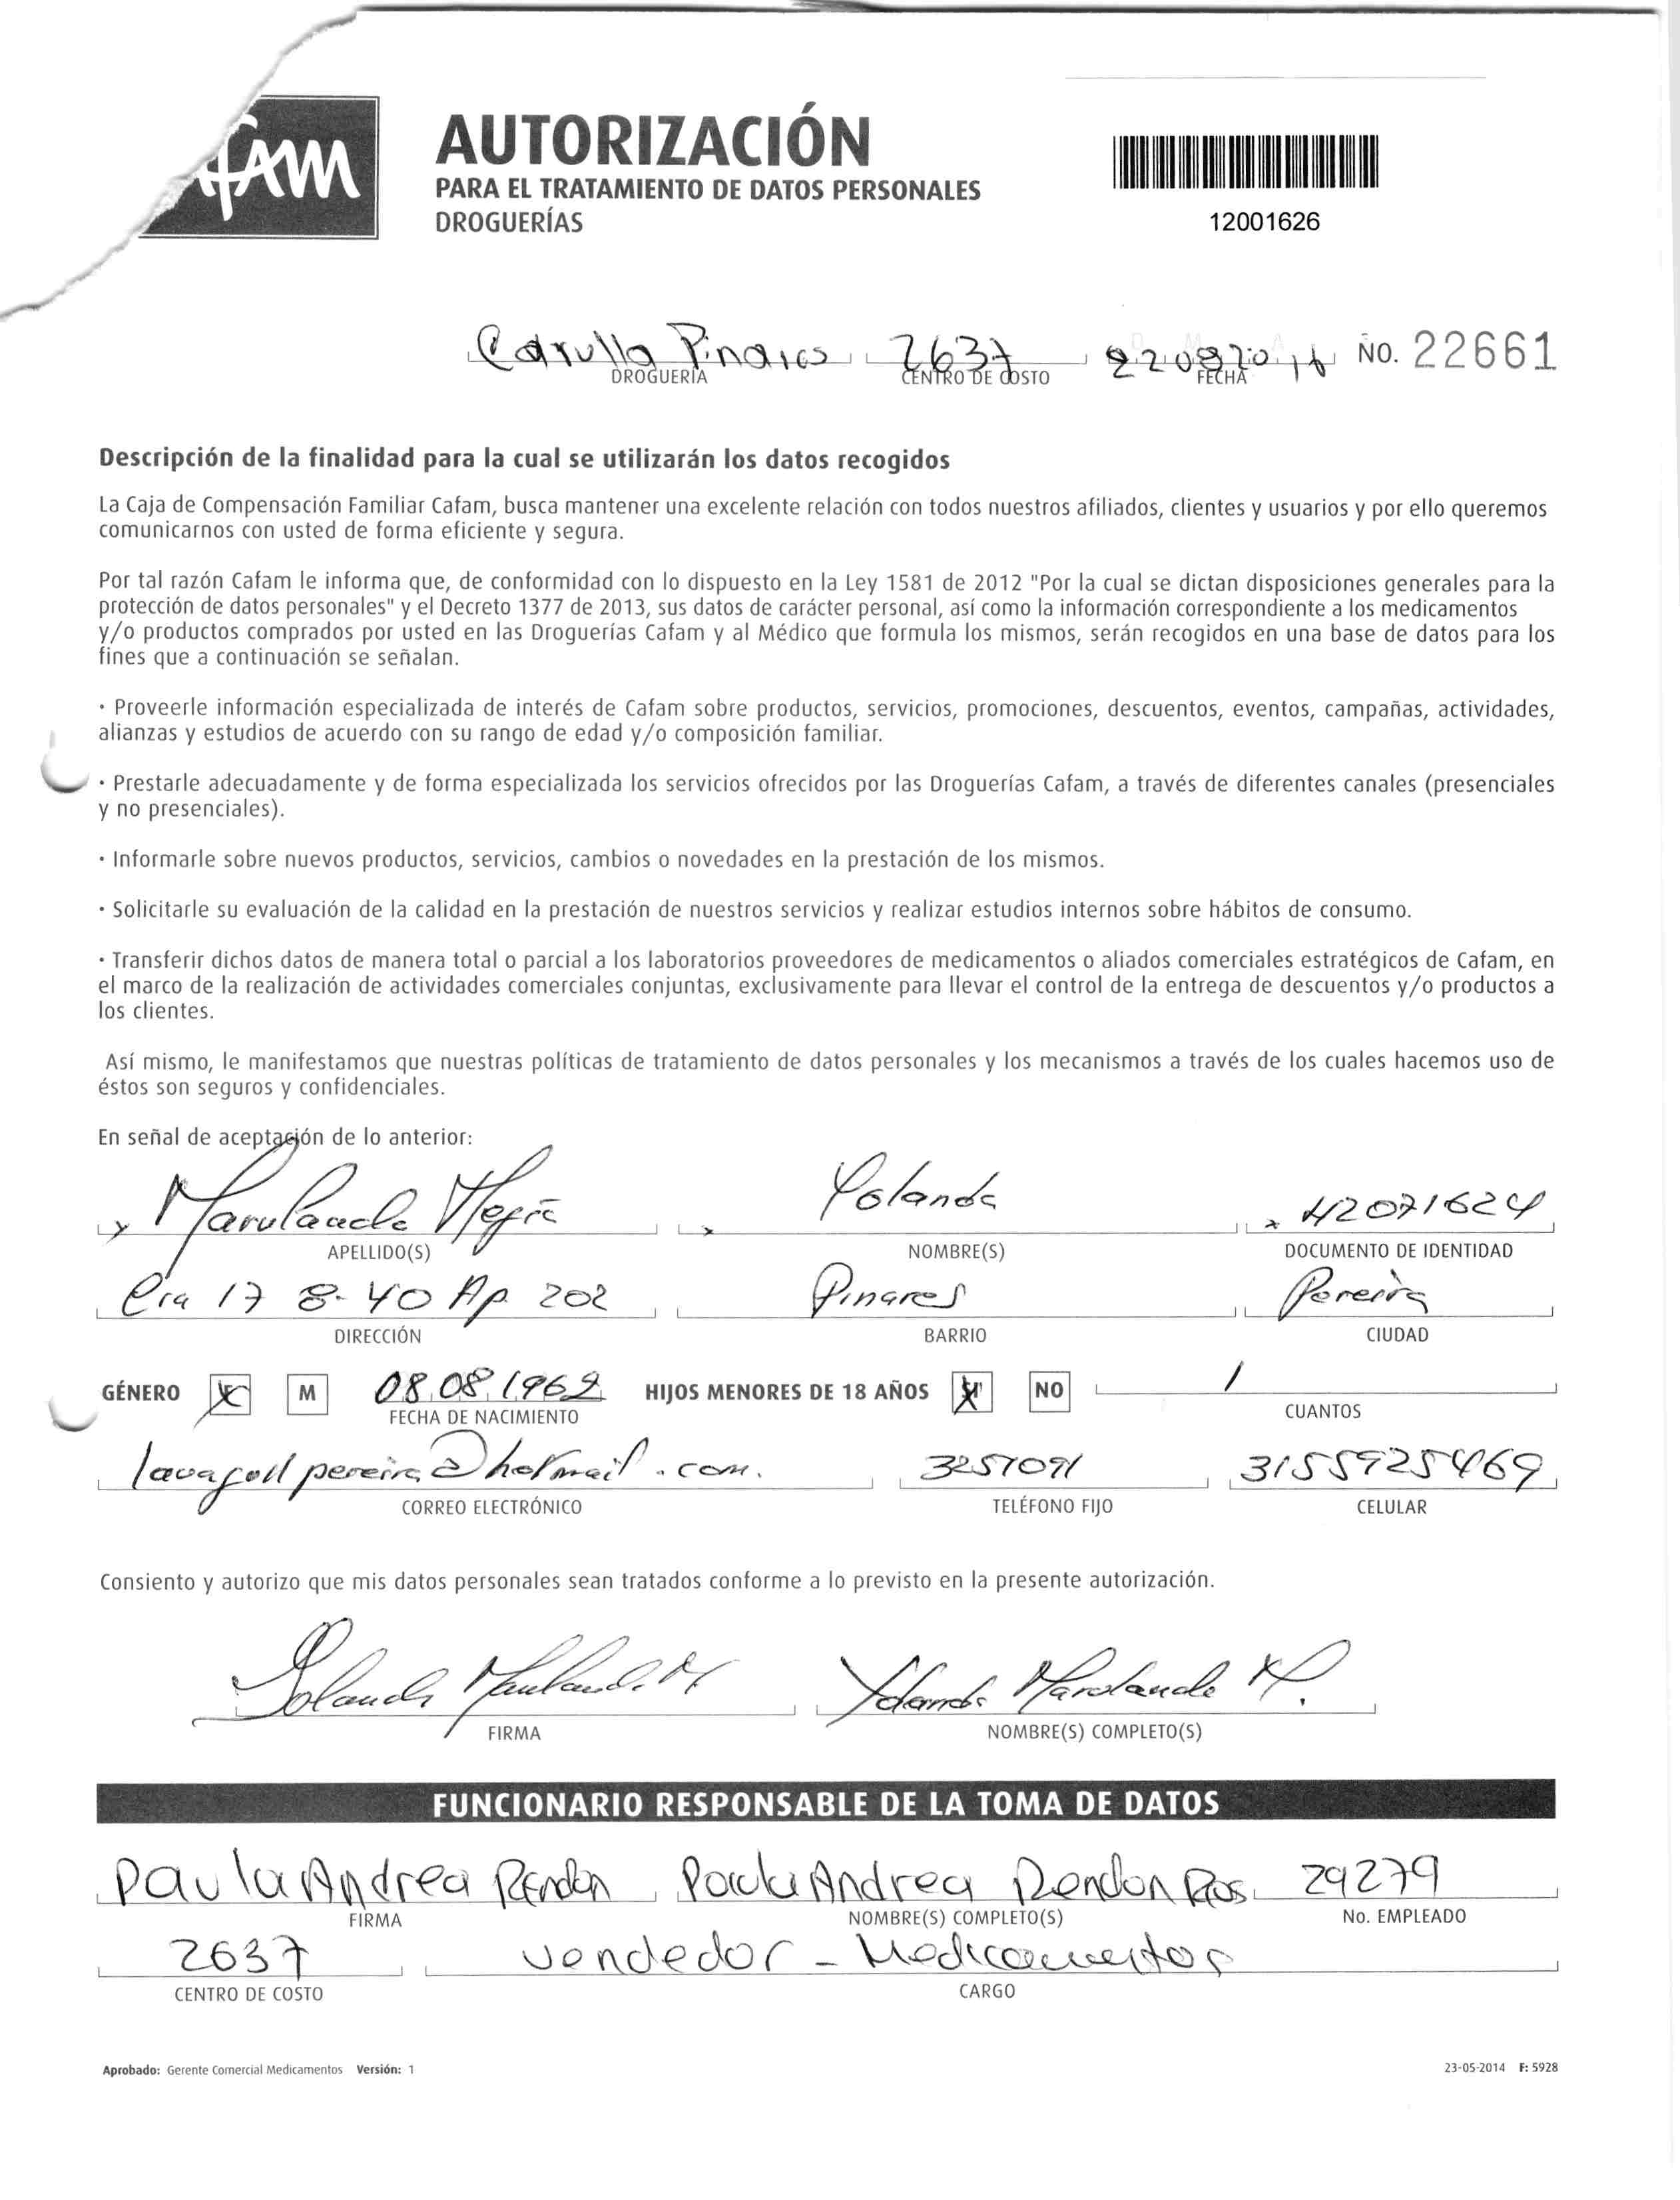 fam
AUTORIZACIÓN
PARA EL TRATAMIENTO DE DATOS PERSONALES
DROGUERÍAS
12001626
Carulla Pinares 2637 No. 22661
DROGUERÍA CENTRO DE COSTO FECHA
Descripción de la finalidad para la cual se utilizarán los datos recogidos
La Caja de Compensación Familiar Cafam, busca mantener una excelente relación con todos nuestros afiliados, clientes y usuarios y por ello queremos
comunicarnos con usted de forma eficiente y segura.
Por tal razón Cafam le informa que, de conformidad con lo dispuesto en la Ley 1581 de 2012 "Por la cual se dictan disposiciones generales para la
protección de datos personales" y el Decreto 1377 de 2013, sus datos de carácter personal, así como la información correspondiente a los medicamentos
y/o productos comprados por usted en las Droguerías Cafam y al Médico que formula los mismos, serán recogidos en una base de datos para los
fines que a continuación se señalan.
· Proveerle información especializada de interés de Cafam sobre productos, servicios, promociones, descuentos, eventos, campañas, actividades,
alianzas y estudios de acuerdo con su rango de edad y/o composición familiar.
· Prestarle adecuadamente y de forma especializada los servicios ofrecidos por las Droguerías Cafam, a través de diferentes canales (presenciales
y no presenciales).
· Informarle sobre nuevos productos, servicios, cambios o novedades en la prestación de los mismos.
· Solicitarle su evaluación de la calidad en la prestación de nuestros servicios y realizar estudios internos sobre hábitos de consumo.
· Transferir dichos datos de manera total o parcial a los laboratorios proveedores de medicamentos o aliados comerciales estratégicos de Cafam, en
el marco de la realización de actividades comerciales conjuntas, exclusivamente para llevar el control de la entrega de descuentos y/o productos a
los clientes.
Así mismo, le manifestamos que nuestras políticas de tratamiento de datos personales y los mecanismos a través de los cuales hacemos uso de
éstos son seguros y confidenciales.
En señal de aceptación de lo anterior:
x Marulanda Mejia x Yolanda x 42071624
APELLIDO(S) NOMBRE(S) DOCUMENTO DE IDENTIDAD
Cra 17 8-40 Ap 202 Pinares Pereira
DIRECCIÓN BARRIO CIUDAD
GÉNERO M 08 08 1962 HIJOS MENORES DE 18 AÑOS NO 1
FECHA DE NACIMIENTO CUANTOS
pereira@hotmail.com. 3251091 3155925469
CORREO ELECTRÓNICO TELÉFONO FIJO CELULAR
Consiento y autorizo que mis datos personales sean tratados conforme a lo previsto en la presente autorización.
Yolanda Marulanda M Yolanda Marulanda M.
FIRMA NOMBRE(S) COMPLETO(S)
FUNCIONARIO RESPONSABLE DE LA TOMA DE DATOS
Paula Andrea Rendon Paula Andrea Rendon Rios 29279
FIRMA NOMBRE(S) COMPLETO(S) No. EMPLEADO
2637 vendedor - Medicamentos
CENTRO DE COSTO CARGO
Aprobado: Gerente Comercial Medicamentos Versión: 1 23-05-2014 F: 5928